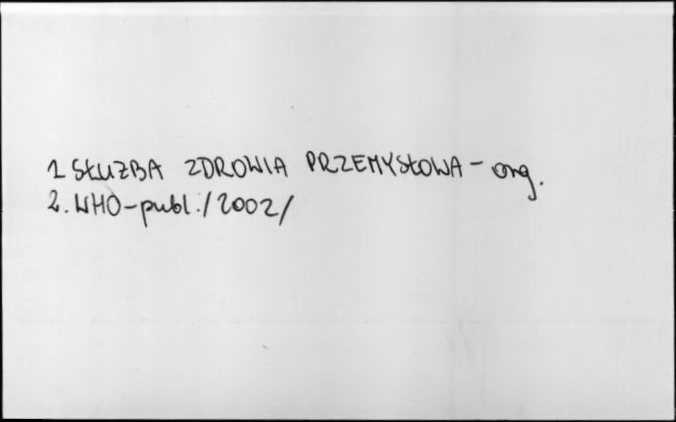 1 SŁUZBA ZDROWIA PRZEMYSŁOWA - org.
2. WHO - publ. /2002/